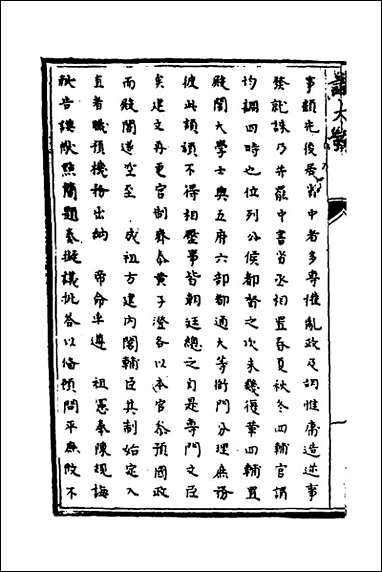 事顛先後居省中者多專權亂政及胡惟庸造逆事
發就誅乃并罷中書省丞相置春夏秋冬四輔官謂
均調四時之位列公侯都督之次未幾復革四輔置
殿閣大學士與五府六部都通大等衙門分理庶務
彼此頡頏不得相壓事皆朝廷總之自是專門文臣
矣建文再更官制齊泰黃子澄各以本官參預國政
而殿閣遂空至 成祖方建內閣輔臣其制始定入
直者職預機務出納 帝命率遵 祖憲奉陳規誨
告謨猷點簡題奏擬議批荅以備顧問平庶政不